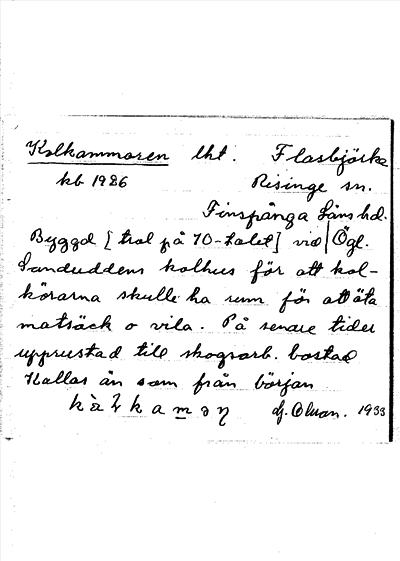 Kolkammaren lht. Flasbjörke
kb 1926 Risinge sn.
Finspånga Läns hd.
Byggd [trol på 70-talet] vid Ögl.
Sanduddens kolhus för att kol-
körarna skulle ha rum för att äta
matsäck o vila. På senare tider
upprustad till skogsarb. bostad
Kallas än som från början
1933